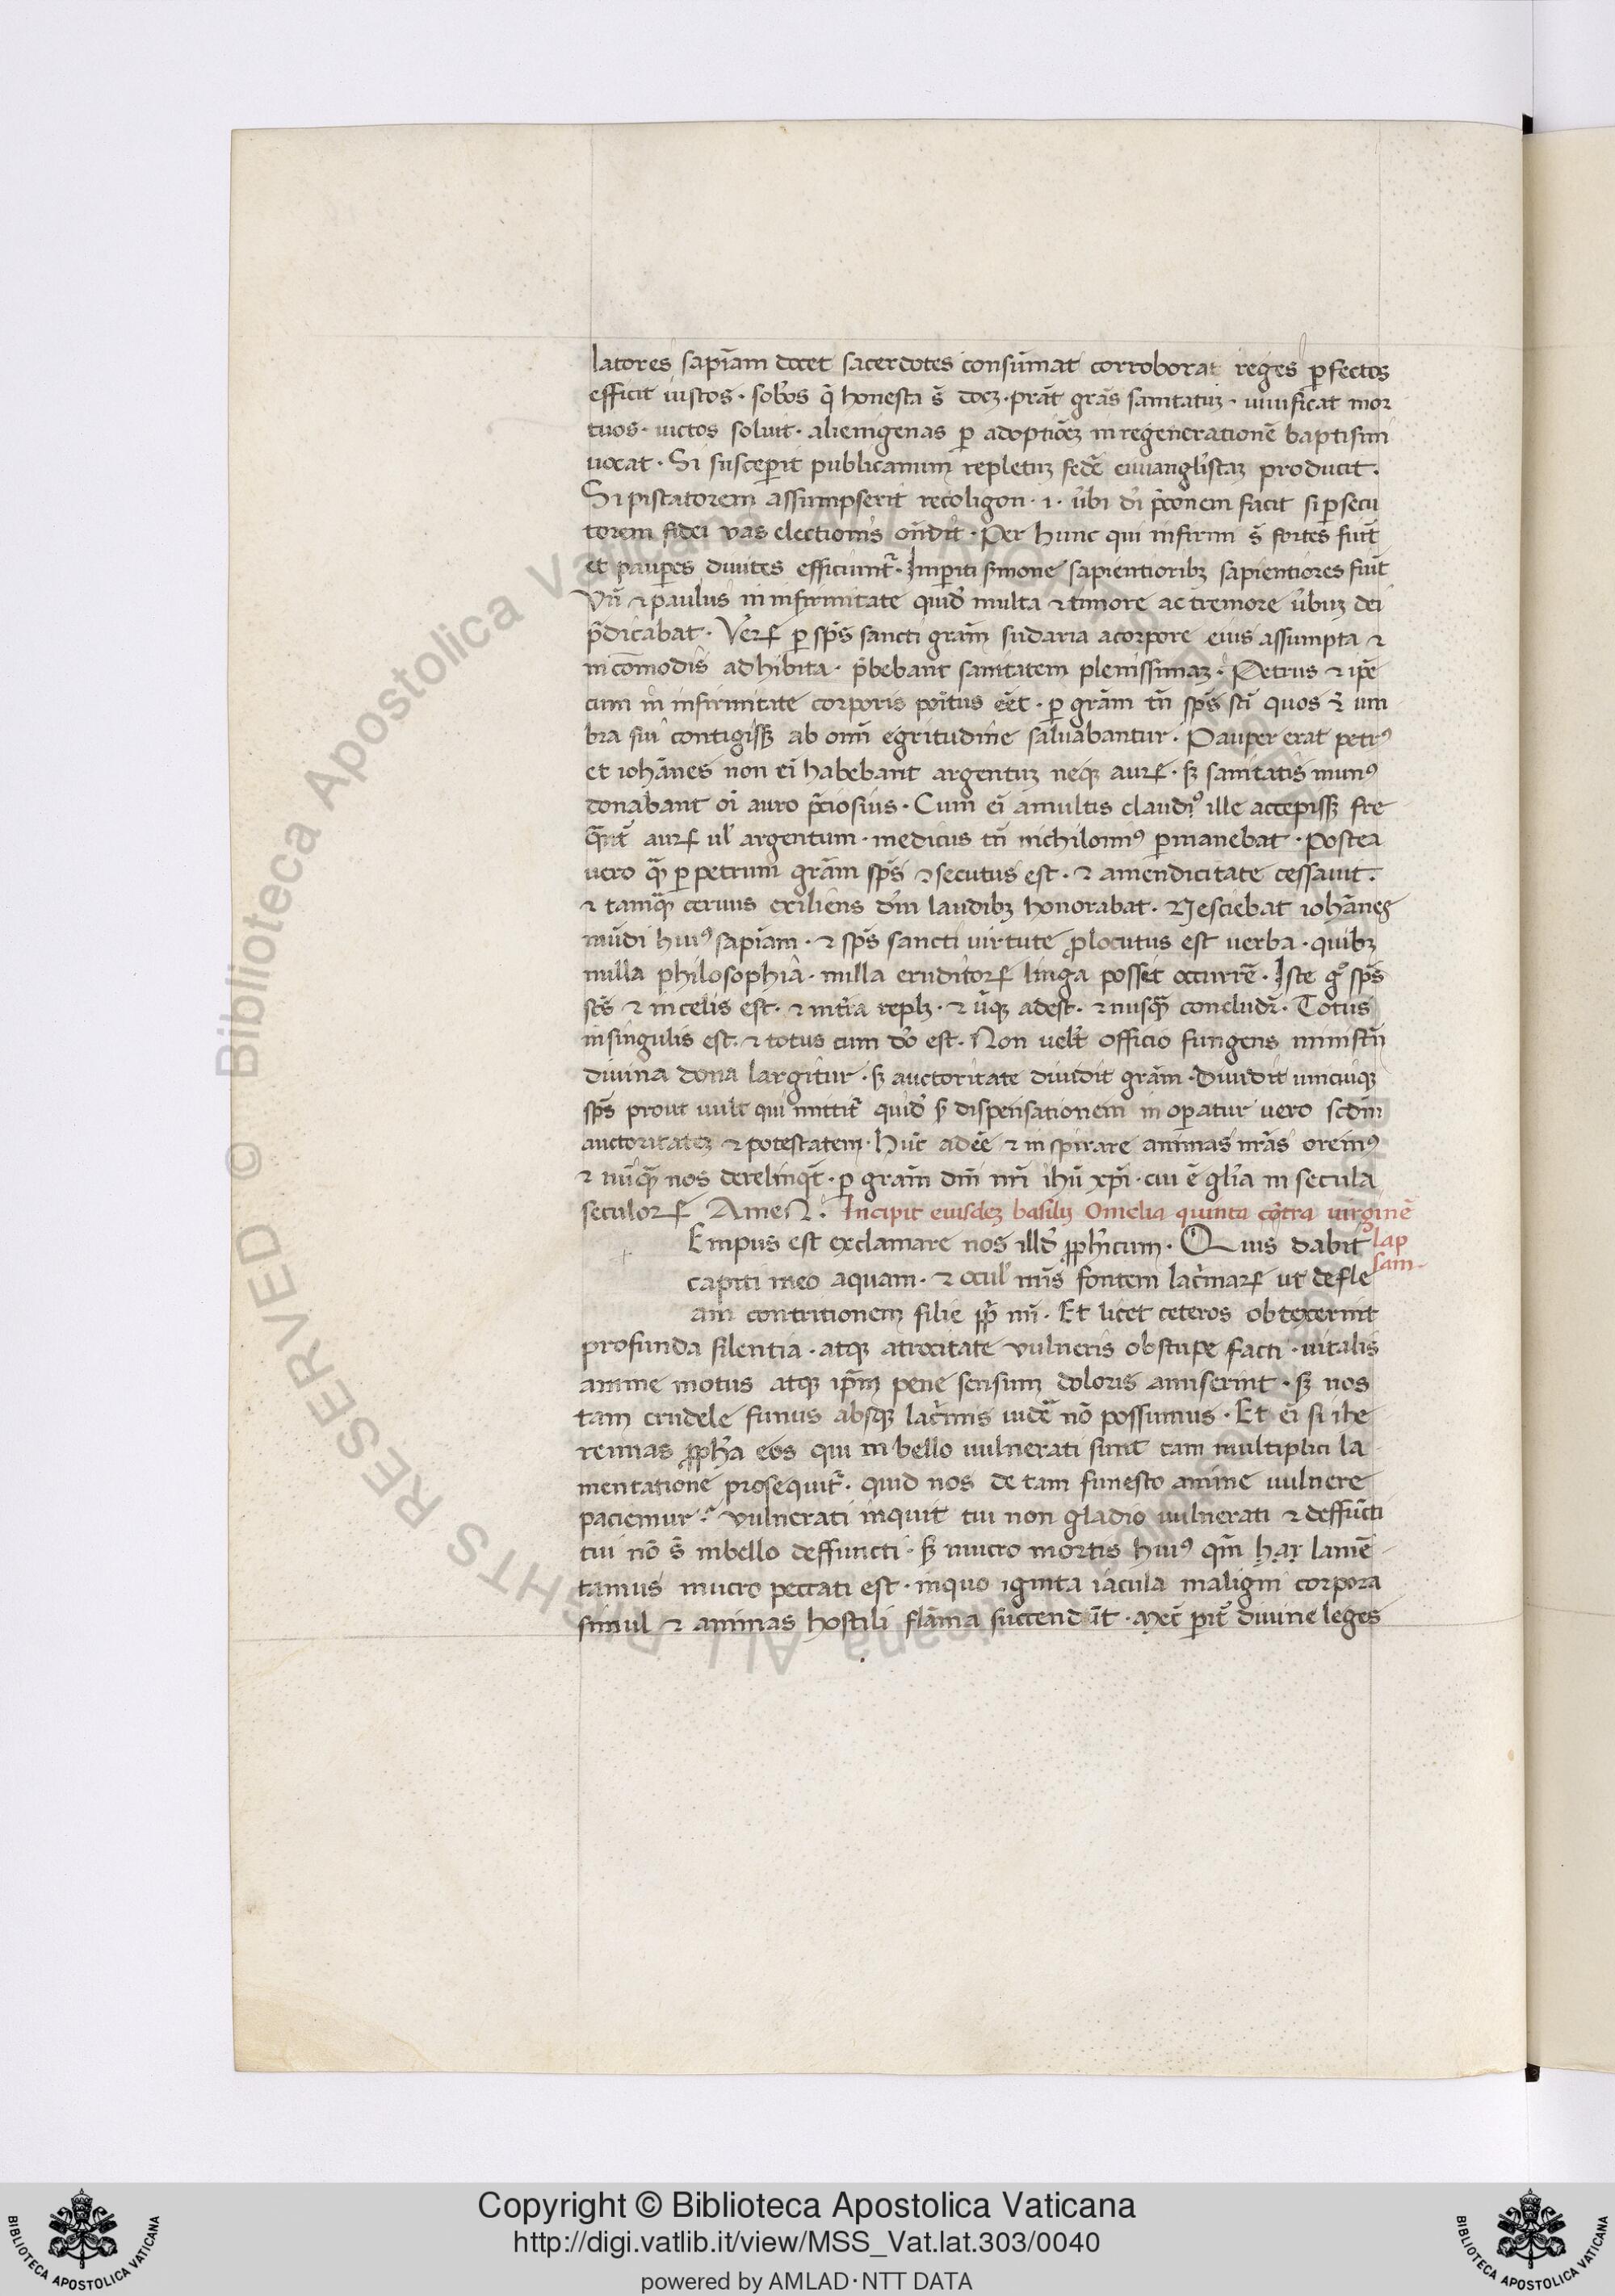 latores sapiāam docet sacerdotes consūmat corroborat reges ꝑfectoꝫ
efficit iustos · sobͦos q̄ honesta s̄ doceꝫ · prāt grās sanitatuꝫ · uiuificat mor
tuos · uictos soluit · alienigenas ꝑ adoptiōeꝫ in regenerationē baptismi
uocat · Si susceꝑit publicanum repletuꝫ fedē euuangl̓istaꝫ producit ·
Si piscatorem assumpserit recoligon · i · u̓bi di̓ p̄conem facit si ꝑsecu
torem fidei vas electionis on̄dit · Per hunc qui infirmi s̄ fortes fiūt
et pauꝑes diuites efficiunt᷑ · Imꝑiti s̓mone sapientioribꝫ sapientiores fiūt
Vn̄ ⁊ paulus in infirmitate quid̓ multa ⁊ timore ac tremore u̓buꝫ dei
p̄dicabat · Ver̓ꝝ ꝑ sp̄s sancti grām sudaria acorpore eius assumpta ⁊
incōmodis adhibita · p̄bebant sanitatem plenissimaꝫ · Petrus ⁊ ip̄e
cum in infirmitate corporis poītus eēt · ꝑ grām tn̄ sp̄s sc̄i quos ⁊ um
bra sui contigissꝫ ab omī egritudine saluabantur · Pauper erat petrꝰ
et iohānes non ei̓ habebant argentuꝫ neqꝫ aurꝝ · sꝫ sanitatis munꝰ
donabant oī auro p̄ciosius · Cum ei̓ amultis claudꝰ ille accepissꝫ fre
q̄nt᷑ aurꝝ ul̓ argentum · medicus tn̄ nichilominꝰ ꝑmanebat · Postea
uero qͣ ꝑ petrum grām sp̄s ⁊ secutus est · ⁊ amendicitate cessauit ·
⁊ tamqͣ ceruus exiliens dn̄m laudibꝫ honorabat · Nesciebat iohānes
mūdi huiꝰ sapiāam · ⁊ sp̄s sancti virtute ꝓlocutus est uerba · quibꝫ
nulla philosophia · nulla eruditorꝝ linga posset occurrē · Iste gͦ sp̄s
sc̄s ⁊ in celis est · ⁊ in t̓ra replꝫ · ⁊ u̓qꝫ adest · ⁊ nusqͣ concludit᷑ · Totus
insingulis est · ⁊ totus cum dō est · Non uelt̓ officio fungens ministri̓
diuina dona largitur · sꝫ auctoritate diuidit grām · Diuidit unicuiqꝫ
sp̄s prout uult qui mittit᷑ quid̓ s̓ dispensationem in oꝑatur uero scd̄m
auctoritateꝫ ⁊ potestatem · Hūc adeē ⁊ inspirare animas nrās oremꝰ
⁊ nūqͣ nos derelinqͣt · ꝑ grām dn̄i nr̄i ih̄u xp̄i · cui ē gl̓ia in secula
seculorꝝ AmeN · Incipit eiusdeꝫ basilij Omelia quinta cōtra uirginē
lap
sam ·
Empus est exclamare nos illd̓ ꝓph̓icum · Quis dabit
capiti meo aquam · ⁊ ocul̓ meis fontem lac̓marꝝ ut defle
am contritionem filie ppl̓i mi · Et licet ceteros obtexerint
profunda silentia · atqꝫ atrocitate vulneris obstupe facti · uitalis
anime motus atqꝫ ip̄m pene sensum doloris amiserint · sꝫ nos
tam crudele funus absqꝫ lac̓mis uidē nō possumus · Et ei̓ si ihe
remias ꝓph̓a eos qui in bello uulnerati sunt tam multiplici la
mentatione prosequit᷑ · quid nos de tam funesto anime uulnere
paciemur · vulnerati inquit tui non gladio uulnerati ⁊ deffūcti
tui nō s̄ inbello deffuncti · sꝫ mucro mortis huiꝰ qm̄ har lamē
tamus mucro peccati est · inquo ignita iacula maligni corpora
simul ⁊ animas hostili flāma succendūt · divine leges